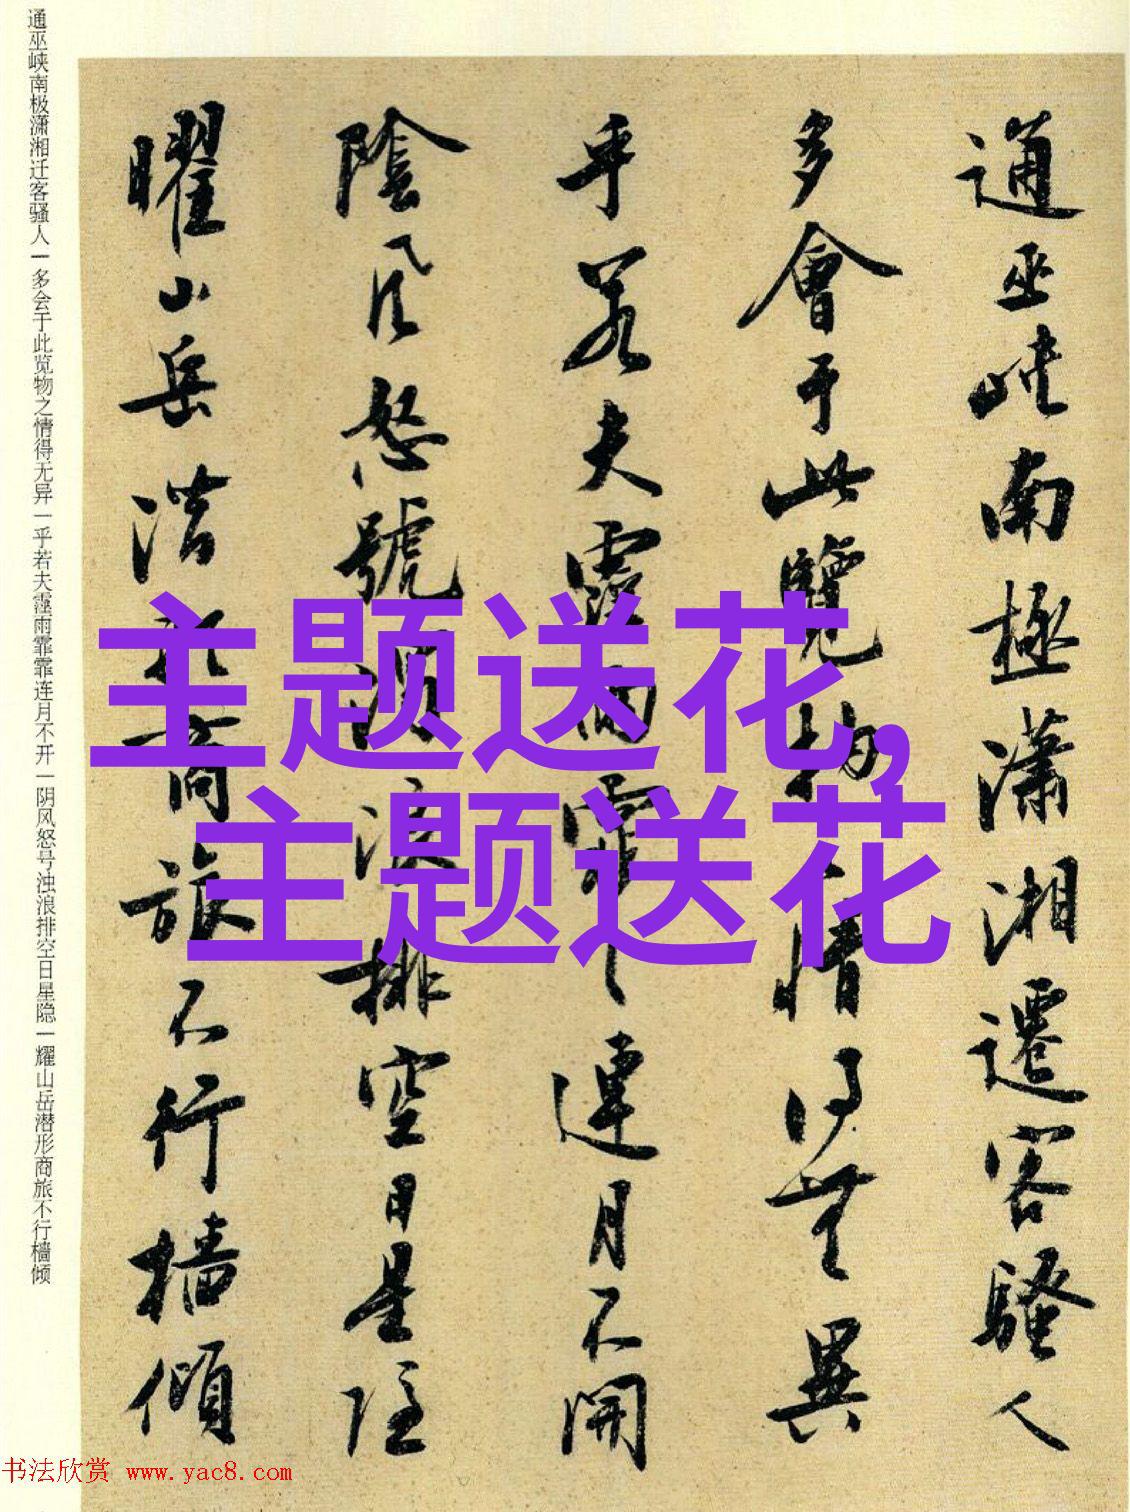 通巫峽南極瀟湘遷客騷人
多會于此覽物之情得無異
乎若夫霪雨霏霏連月不開
陰風怒號濁浪排空日星隱
曜山岳潛形商旅不行檣傾
通巫峡南极潇湘迁客骚人一多会于此览物之情得无异一乎若夫霪雨霏霏连月不开一阴风怒号浊浪排空日星隐一耀山岳潜形商旅不行樯倾
主题送花,
主题送花
书法欣赏 www.yac8.com